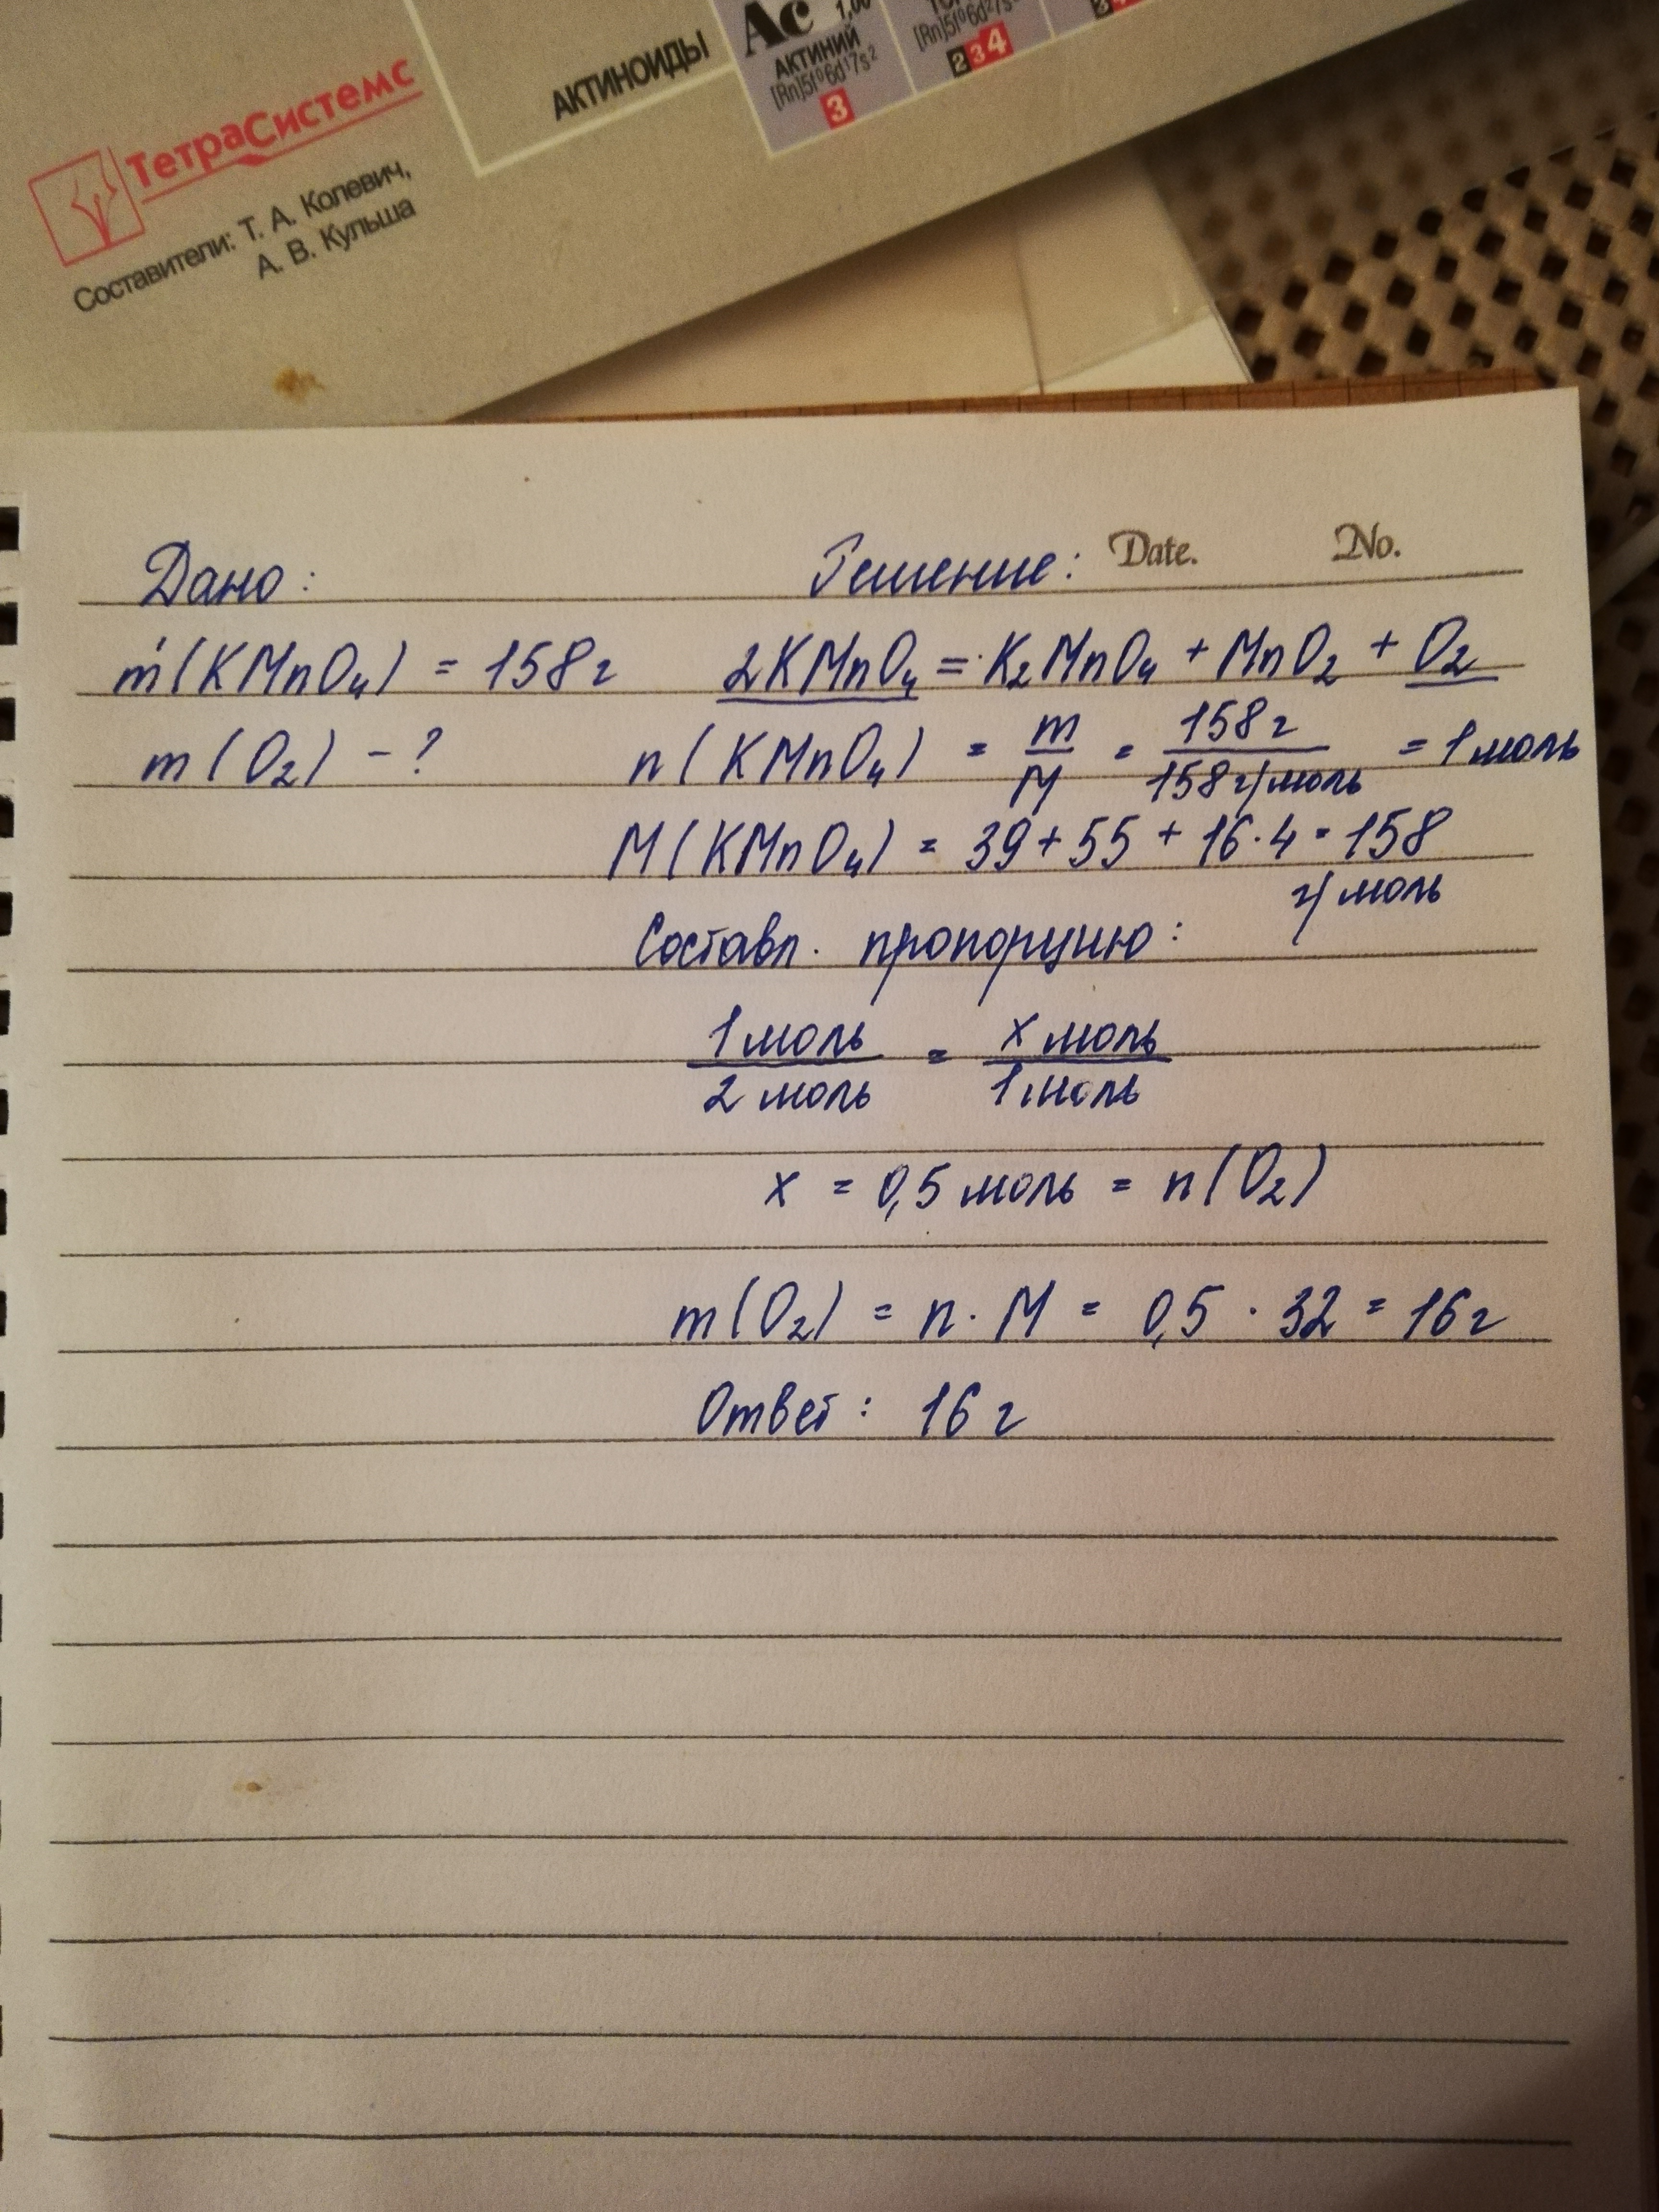 Ac 1,00
АКТИНИЙ
[Rn]5f⁰6d¹7s²
3
[Rn]5f⁰6d²7s²
2 3 4
АКТИНОИДЫ
ТетраСистемс
Составители: Т. А. Колевич,
А. В. Кульша
Date. No.
Дано: Решение:
m(KMnO₄) = 158г 2KMnO₄ = K₂MnO₄ + MnO₂ + O₂
m(O₂) - ? n(KMnO₄) = m/M = 158г/158г/моль = 1моль
M(KMnO₄) = 39+55+16·4=158
г/моль
Составл. пропорцию:
1моль/2моль = x моль/1моль
x = 0,5 моль = n(O₂)
m(O₂) = n·M = 0,5·32 = 16г
Ответ: 16г